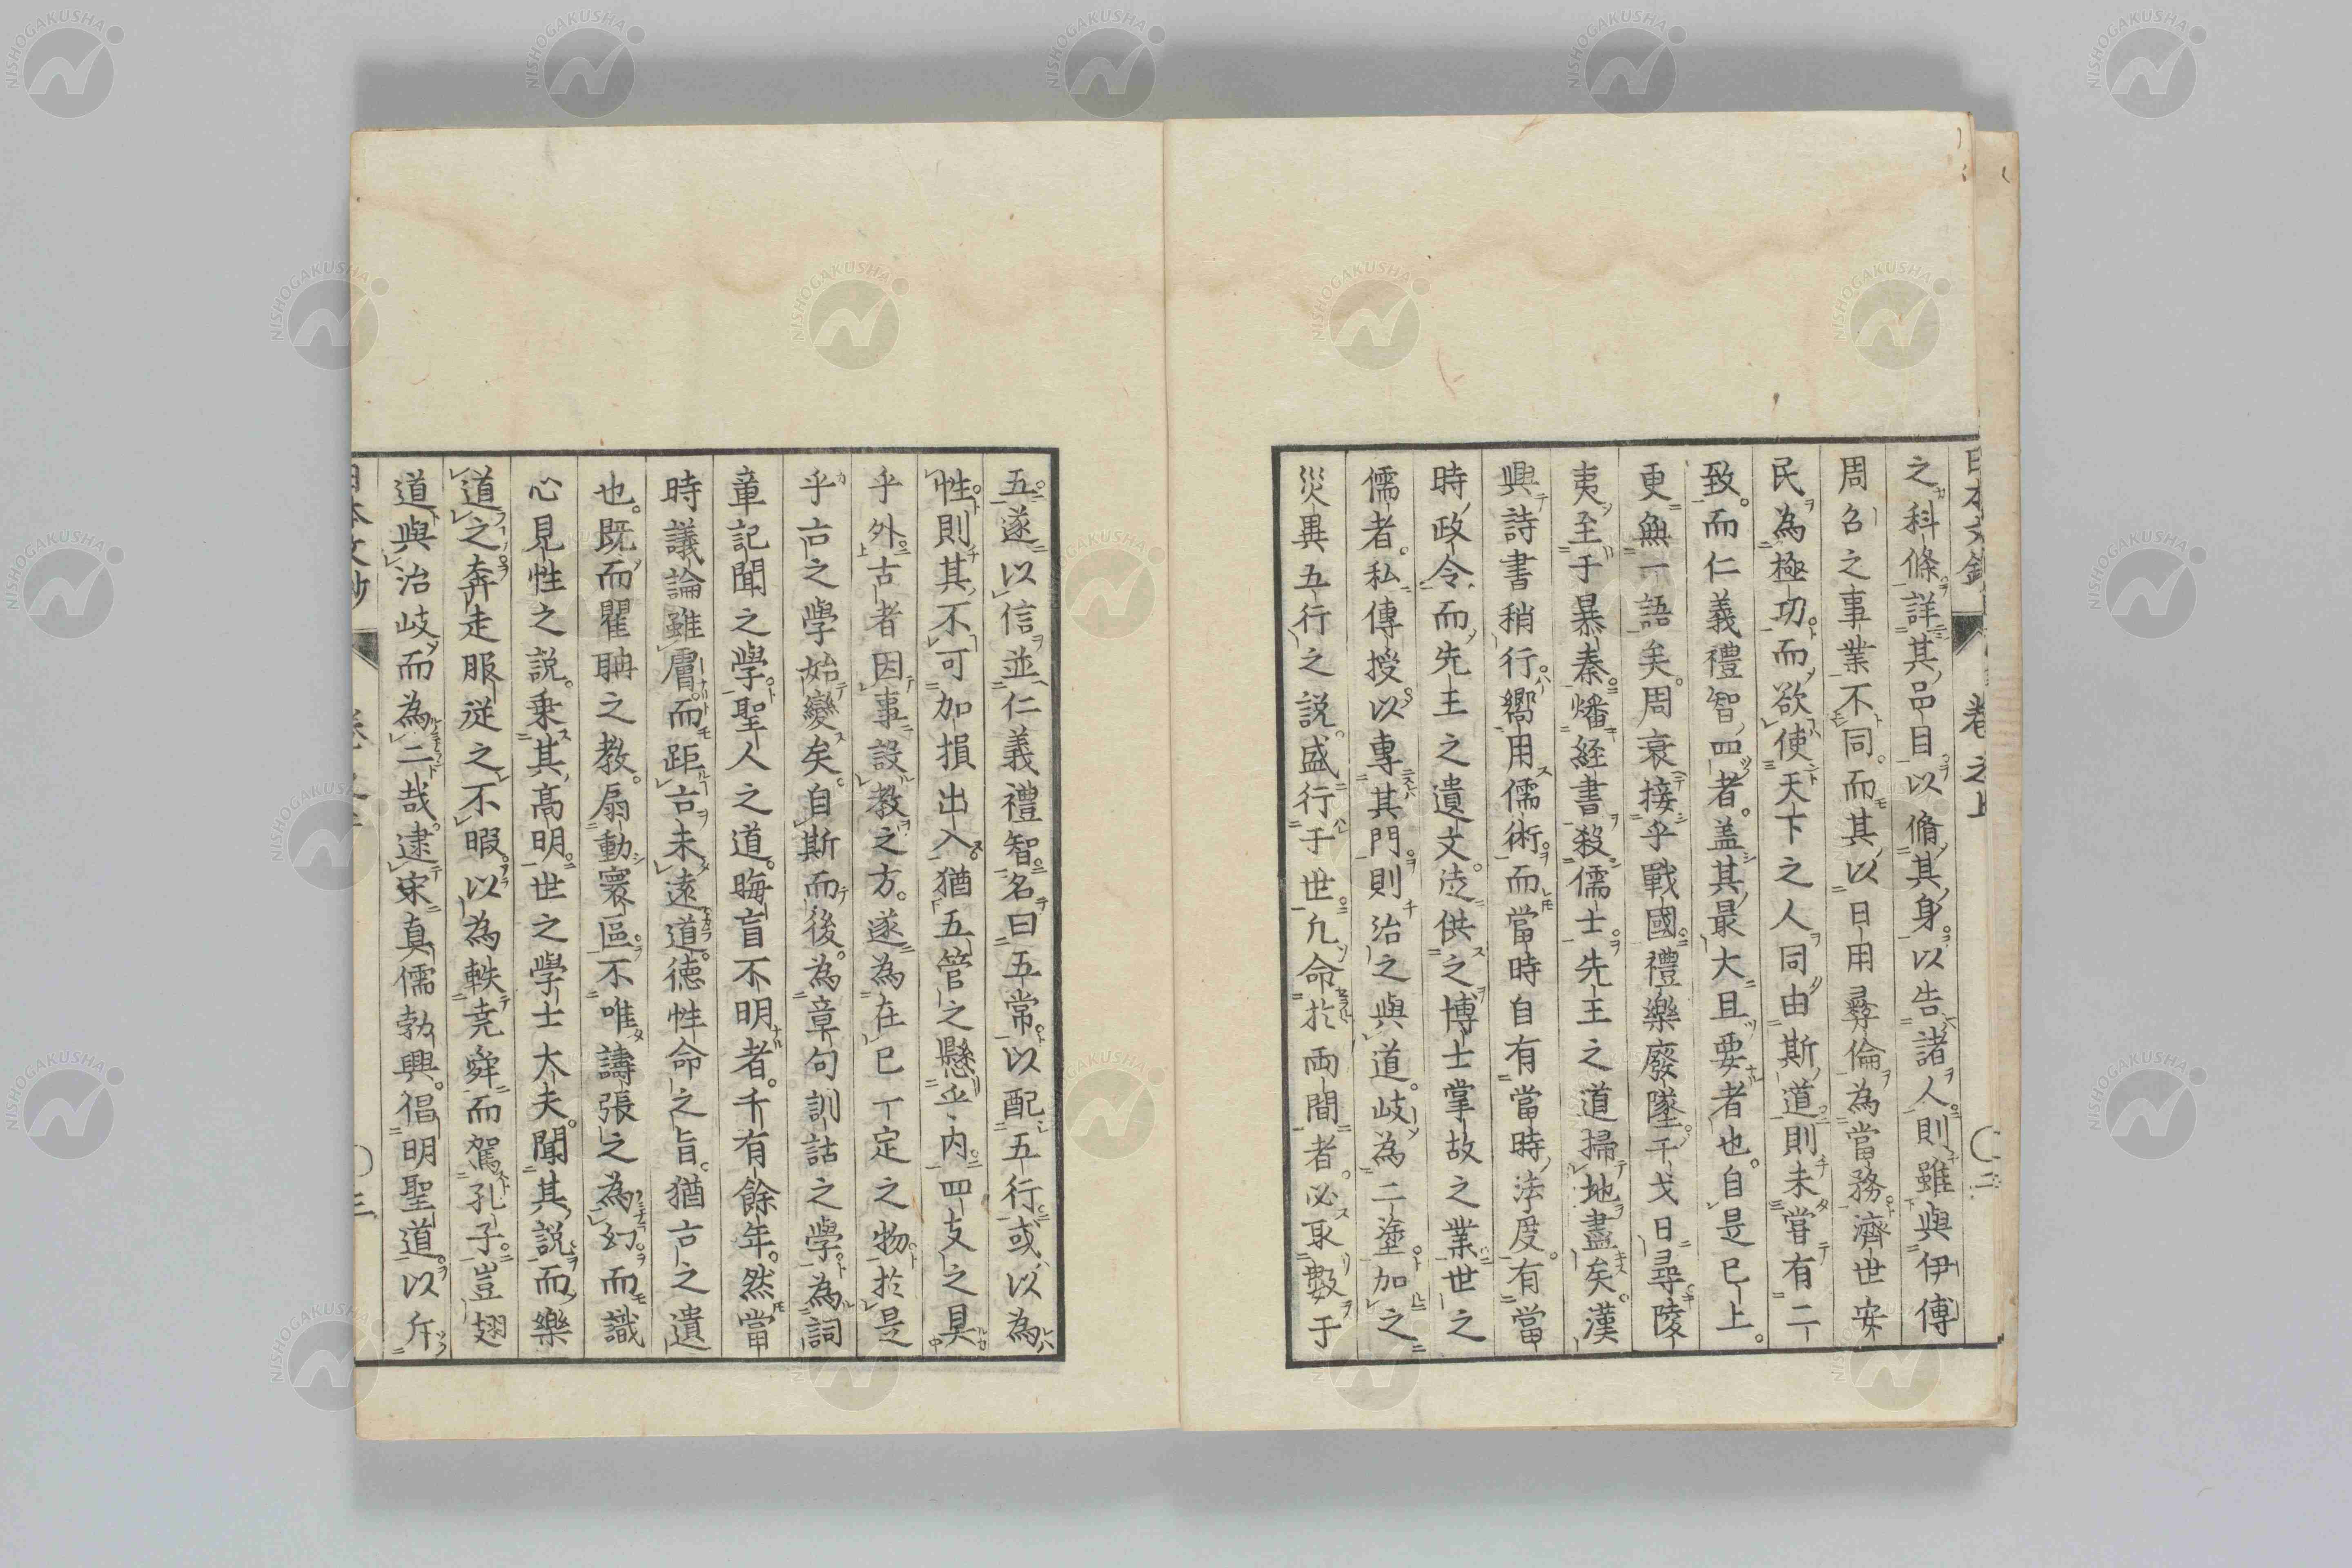 日本文鈔 卷之上 〇二
之科條詳其品目以脩其身以告諸人則雖與伊傅
周召之事業不同而其以日用彛倫為當務濟世安
民為極功而欲使天下之人同由斯道則未甞有二
致而仁義禮智四者盖其最大且要者也自是已上
更無一語矣周衰接乎戰國禮樂廢墜干戈日尋陵
夷至于暴秦燔経書殺儒士先王之道掃地盡矣漢
興詩書稍行嚮用儒術而當時自有當時法度有當
時政令而先王之遺文徒供之博士掌故之業世之
儒者私傳授以專其門則治之與道岐為二塗加之
災異五行之説盛行于世凢命於両間者必取數于
五遂以信並仁義禮智名曰五常以配五行或以為
性則其不可加損出入猶五管之懸乎内四支之具
乎外古者因事設教之方遂為在已一定之物於是
乎古之學始變矣自斯而後為章句訓詁之學為詞
章記聞之學聖人之道晦盲不明者千有餘年然當
時議論雖膚而距古未遠道徳性命之旨猶古之遺
也既而瞿聃之教扇動寰區不唯譸張之為幻而識
心見性之説乗其高明世之學士大夫聞其説而樂
道之奔走服従之不暇以為軼尭舜而駕孔子豈翅
道與治岐而為二哉逮宋真儒勃興倡明聖道以斥
日本文鈔 〇三
NISHOGAKUSHA